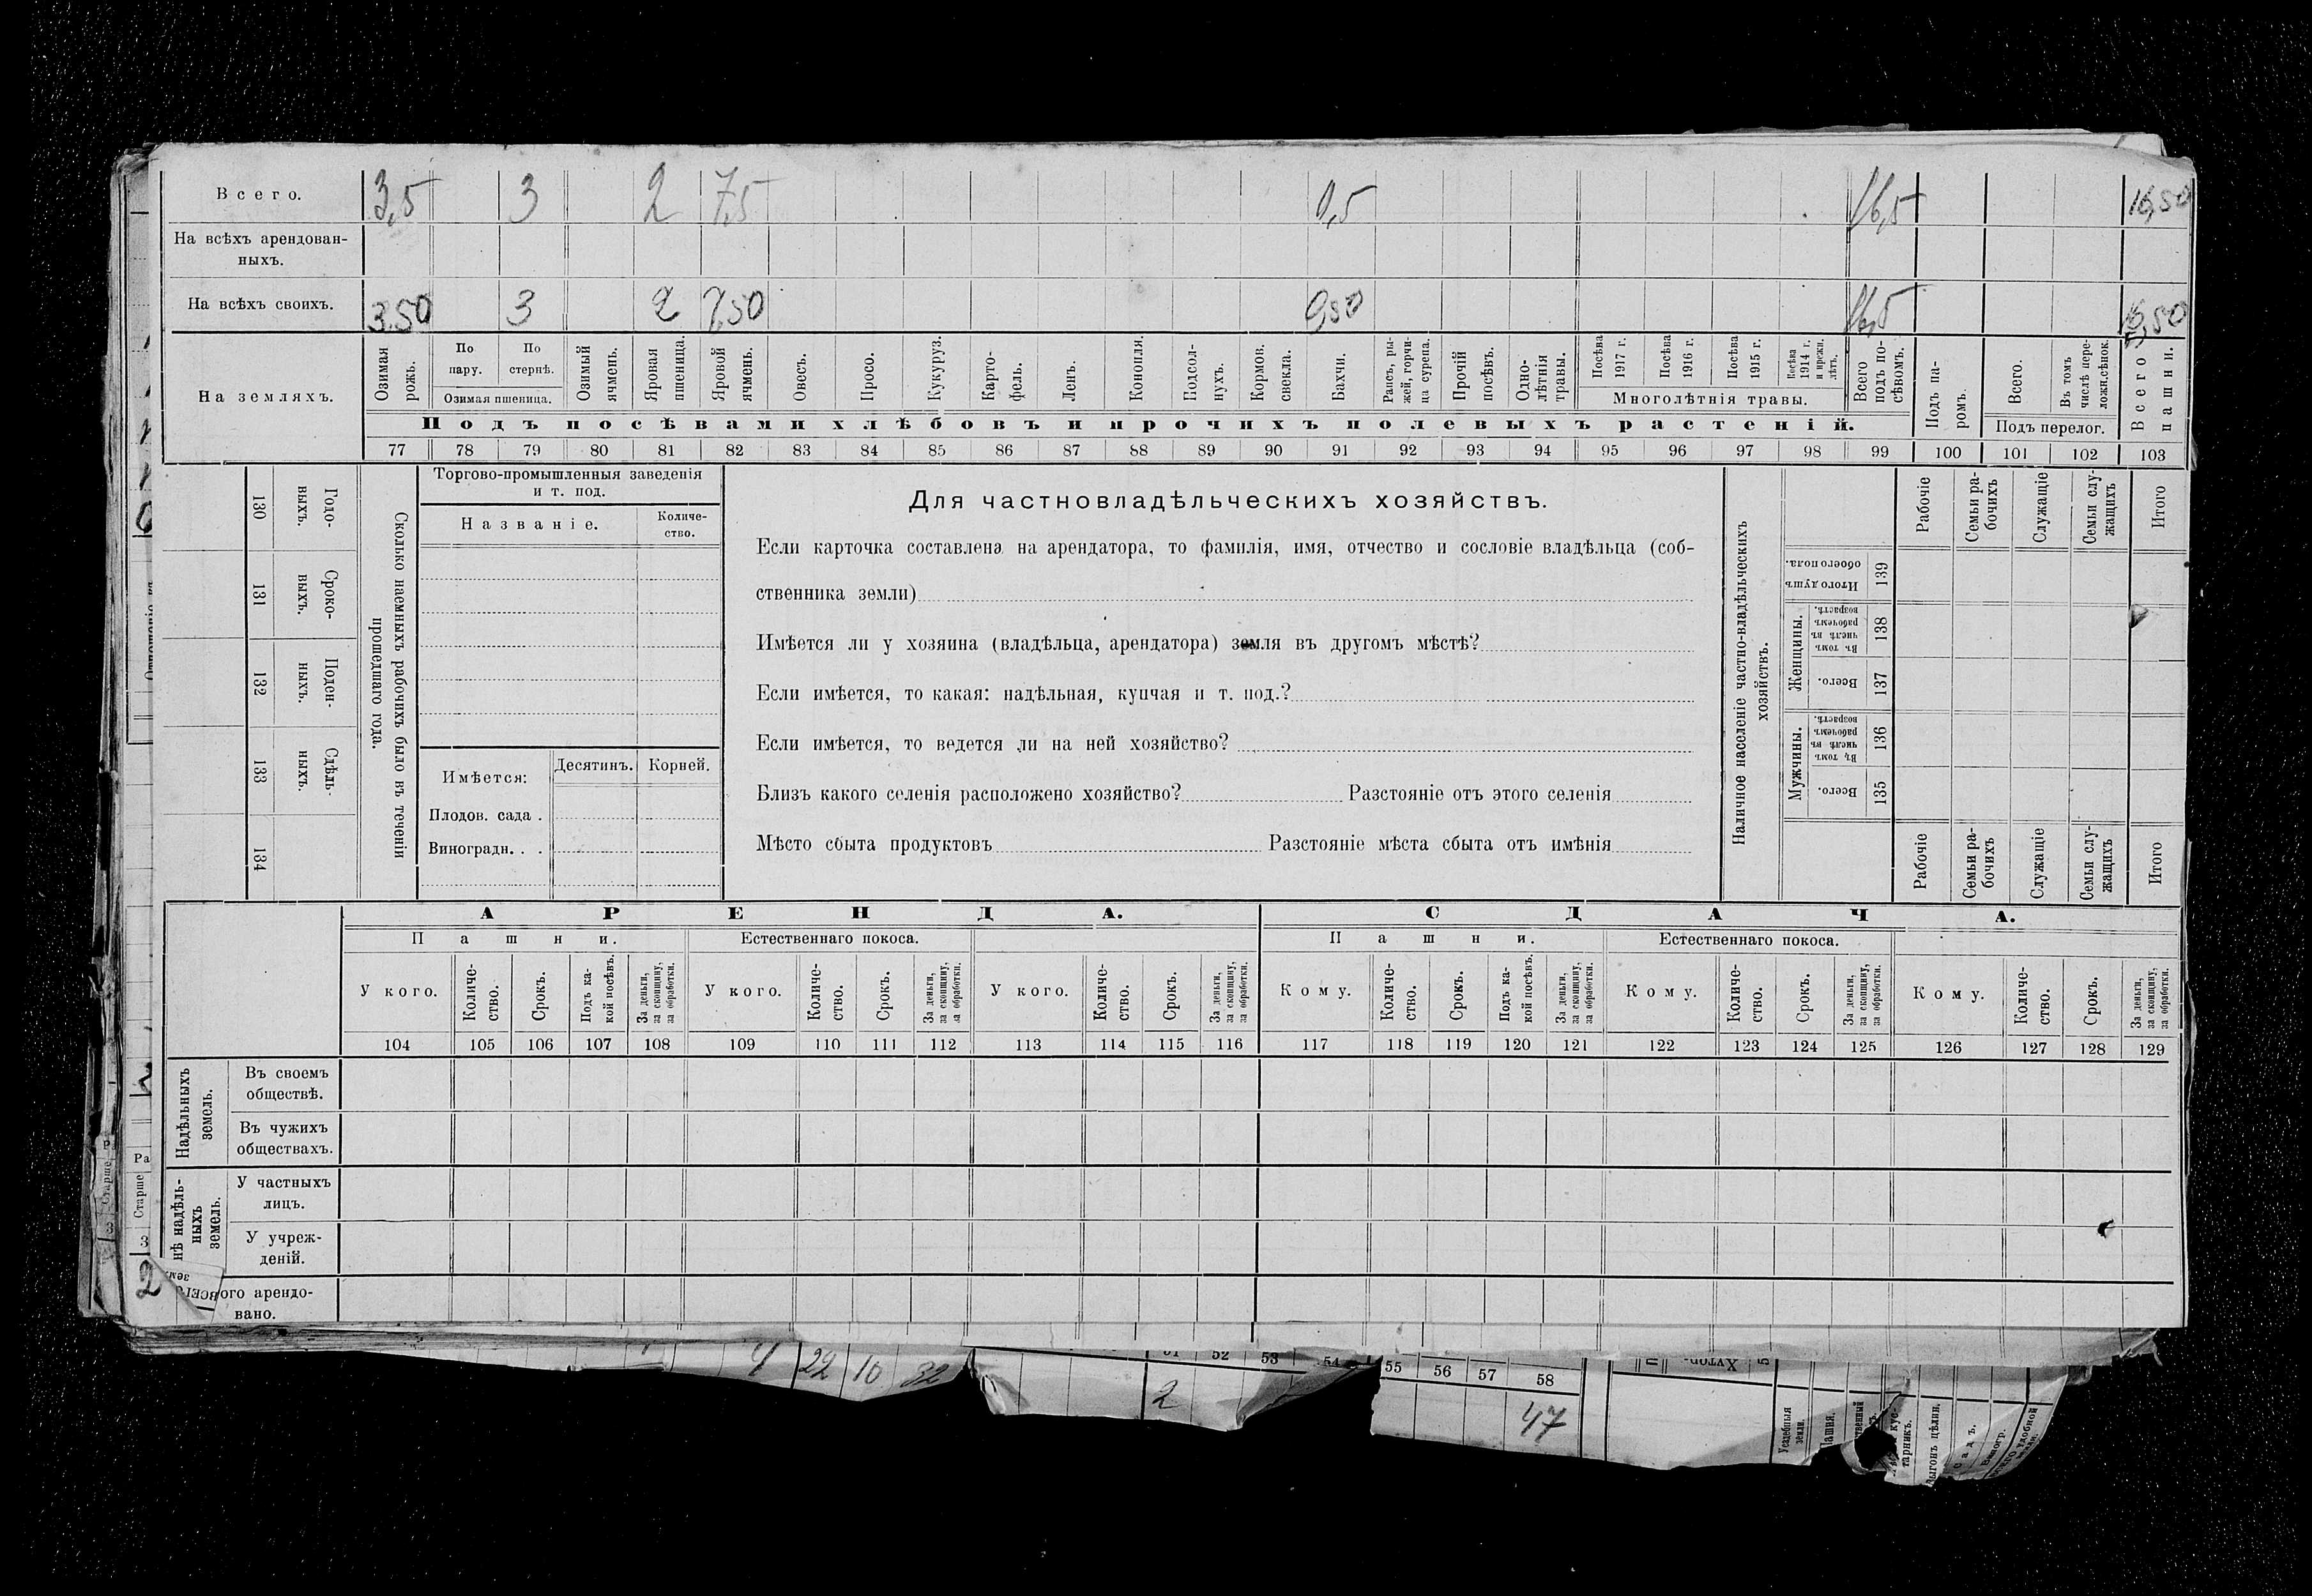 Всего. 3,5 3 2 7,5 0,5 16,5 16,50
На всѣхъ арендован-
ныхъ.
На всѣхъ своихъ. 3.50 3 2 7,50 0,50 16,5 16,50
На земляхъ.
Озимая
рожь.
По
пару.
По
стернѣ.
Озимая пшеница.
Озимый
ячмень.
Яровая
пшеница.
Яровой
ячмень.
Овесъ.
Просо.
Кукуруз.
Карто-
фель.
Ленъ.
Конопля.
Подсол-
нухъ.
Кормов.
свекла.
Бахчи.
Рапсъ, ры-
жей, горчи-
ца сурепа.
Прочій
посѣвъ.
Одно-
лѣтнія
травы.
Посѣва
1917 г.
Посѣва
1916 г.
Посѣва
1915 г.
Посѣва
1914 г.
и прежн.
лѣтъ.
Многолѣтнія травы.
Всего
подъ по-
сѣвомъ.
Подъ па-
ромъ.
Всего.
Въ томъ
числѣ пере-
ложн.сѣнок.
Подъ перелог.
Всего
пашни.
Подъ посѣвами хлѣбовъ и прочихъ полевыхъ растеній.
77 78 79 80 81 82 83 84 85 86 87 88 89 90 91 92 93 94 95 96 97 98 99 100 101 102 103
130
Годо-
выхъ.
131
Сроко-
выхъ.
132
Поден-
ныхъ.
133
Сдѣль-
ныхъ.
134
Сколько наемныхъ рабочихъ было въ теченіи
прошедшаго года.
Торгово-промышленныя заведенія
и т. под.
Названіе.
Количе-
ство.
Имѣется:
Десятинъ. Корней.
Плодов. сада .
Виноградн. . .
Для частновладѣльческихъ хозяйствъ.
Если карточка составлена на арендатора, то фамилія, имя, отчество и сословіе владѣльца (соб-
ственника земли)
Имѣется ли у хозяина (владѣльца, арендатора) земля въ другомъ мѣстѣ?
Если имѣется, то какая: надѣльная, купчая и т. под.?
Если имѣется, то ведется ли на ней хозяйство?
Близъ какого селенія расположено хозяйство? Разстояніе отъ этого селенія
Мѣсто сбыта продуктовъ Разстояніе мѣста сбыта отъ имѣнія
Наличное населеніе частно-владѣльческихъ
хозяйствъ.
Рабочіе
Семьи ра-
бочихъ
Служащіе
Семьи слу-
жащихъ
Итого
Итого душъ
обоего пола.
139
Женщины.
Въ томъ
числѣ въ
рабочемъ
возрастѣ.
138
Всего.
137
Мужчины.
Въ томъ
числѣ въ
рабочемъ
возрастѣ.
136
Всего.
135
Рабочіе
Семьи ра-
бочихъ
Служащіе
Семьи слу-
жащихъ
Итого
АРЕНДА. СДАЧА.
Пашни. Естественнаго покоса. Пашни. Естественнаго покоса.
У кого.
Количе-
ство.
Срокъ.
Подъ ка-
кой посѣвъ.
За деньги,
за скопщину,
за обработки.
У кого.
Количе-
ство.
Срокъ.
За деньги,
за скопщину,
за обработки.
У кого.
Количе-
ство.
Срокъ.
За деньги,
за скопщину,
за обработки.
Кому.
Количе-
ство.
Срокъ.
Подъ ка-
кой посѣвъ.
За деньги,
за скопщину,
за обработки.
Кому.
Количе-
ство.
Срокъ.
За деньги,
за скопщину,
за обработки.
Кому.
Количе-
ство.
Срокъ.
За деньги,
за скопщину,
за обработки.
104 105 106 107 108 109 110 111 112 113 114 115 116 117 118 119 120 121 122 123 124 125 126 127 128 129
Надѣльныхъ
земель.
Въ своемъ
обществѣ.
Въ чужихъ
обществахъ.
нѣ надѣль-
ныхъ
земель.
У частныхъ
лицъ.
У учреж-
деній.
ого арендо-
вано.
Ра
Старше
З
2
4 22 10 32
52 53 54 55 56 57 58
2
47
Хутор-
Усадебныя
земли.
Пашня.
тарникъ.
Выгонъ цѣлин.
Садъ.
Виногр.
удобной